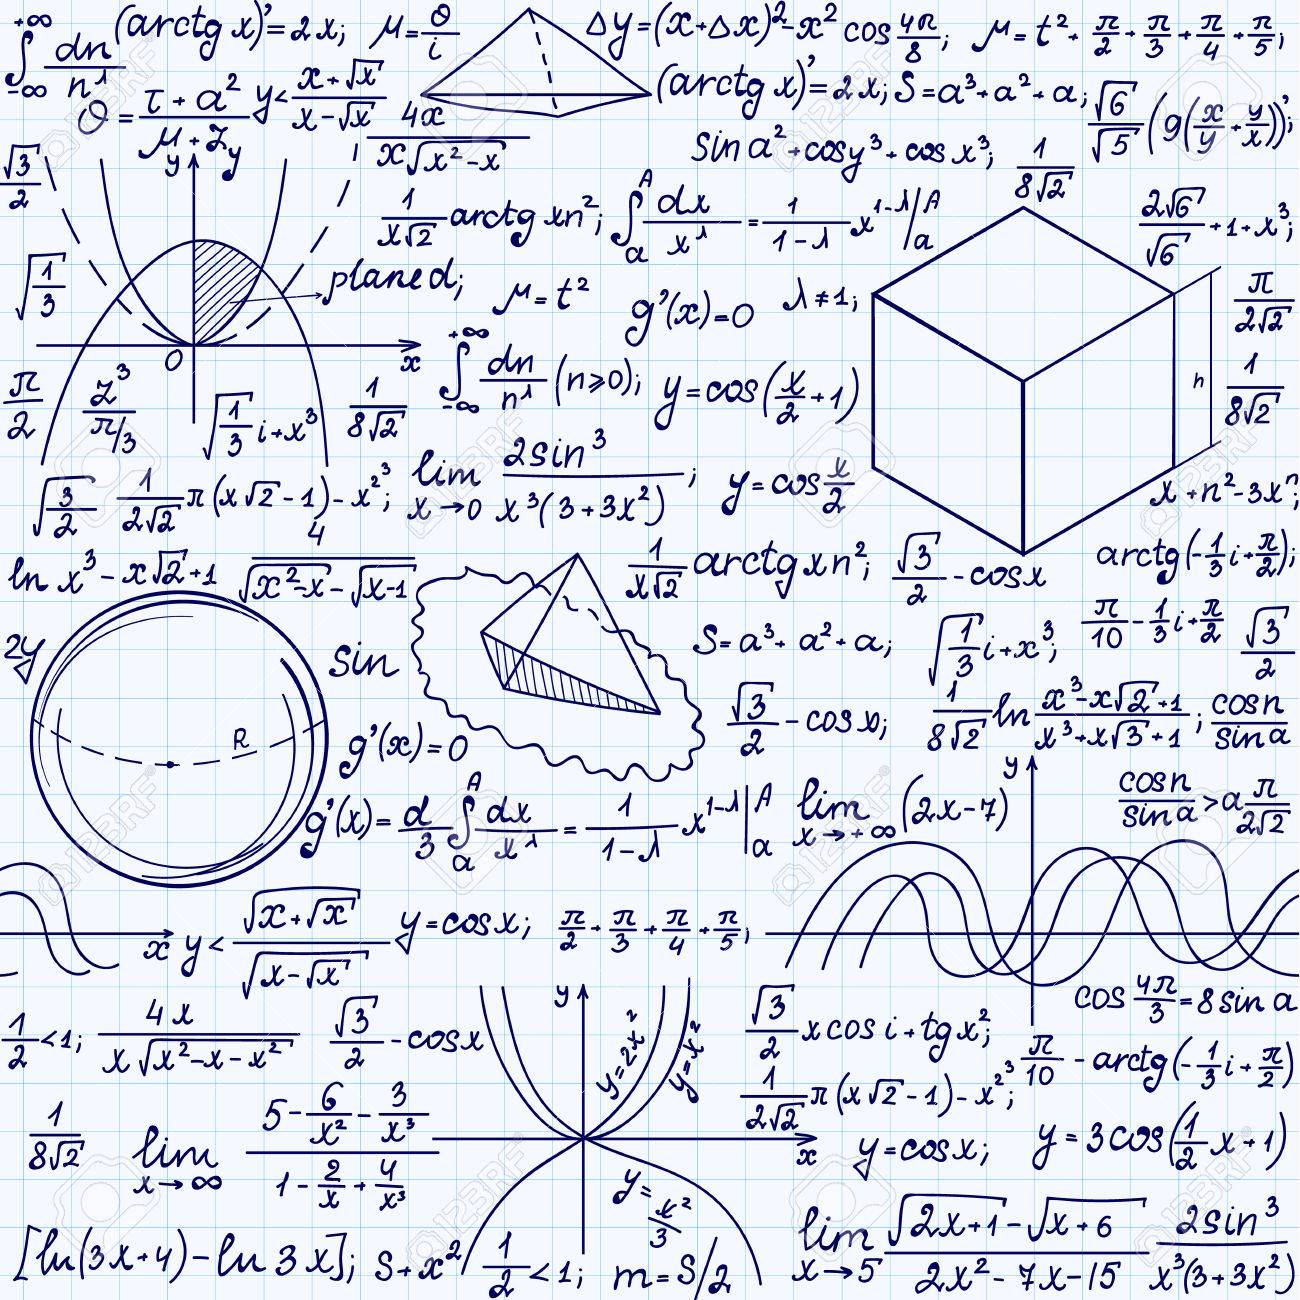 +∞ ∫ -∞ dn/n^λ (arctg x)' = 2x; μ = θ/i Δy = (x+Δx)² - x² cos 4π/8; μ = t² + π/2 + π/3 + π/4 + π/5;
θ = (τ + a²)/(μ + z y) y < (x+√x)/(x-√x) (arctg x)' = 2x; S = a³ + a² + a; √6/√5 (g(x/y + y/x))';
4x/(x√(x²-x)) sin a² + cos y³ + cos x³; 1/8√2
√3/2 y 1/x√2 arctg xn²; ∫ A a dx/x^λ = 1/(1-λ) x^(1-λ) | A a 2√6/√6 + 1 + x³;
√(1/3) plane d; μ = t² g'(x) = 0 λ ≠ 1; π/2√2
0 x +∞ ∫ -∞ dn/n^λ (n ⩾ 0); y = cos(x/2 + 1) h 1/8√2
π/2 z³/π/3 √(1/3) i + x³ 1/8√2
lim x→0 2 sin³/x³(3+3x²); y = cos x/2
√(3/2) 1/2√2 π(x√2 - 1) - x²³; x + n² - 3xⁿ;
ln x³ - x√2 + 1 4/(√(x²-x) - √(x-1)) 1/x√2 arctg xn²; √3/2 - cos x arctg(-1/3 i + π/2);
2y √ sin S = a³ + a² + a; √(1/3) i + x³; π/10 - 1/3 i + π/2 √3/2
R g'(x) = 0 √3/2 - cos x; 1/8√2 ln (x³ - x√2 + 1)/(x³ + x√3 + 1); cos n/sin a
g'(x) = d/3 ∫ A a dx/x^λ = 1/(1-λ) x^(1-λ) | A a lim x→+∞ (2x-7) y cos n/sin a > a π/2√2
x y < √(x+√x)/√(x-√x) y = cos x; π/2 + π/3 + π/4 + π/5;
cos 4π/3 = 8 sin a
1/2 < 1; 4x/(x√(x²-x-x²)) √3/2 - cos x y y = 2x² y = x² √3/2 x cos i + tg x²; π/10 - arctg(-1/3 i + π/2)
1/2√2 π(x√2 - 1) - x²³;
1/8√2 lim x→∞ (5 - 6/x² - 3/x³)/(1 - 2/x + 4/x³) x y = cos x; y = 3cos(1/2 x + 1)
y = x²/3
[ln(3x+4) - ln 3x]; S + x² 1/2 < 1; m = S/2 lim x→5 (√(2x+1) - √(x+6))/(2x² - 7x - 15) 2 sin³/x³(3+3x²)